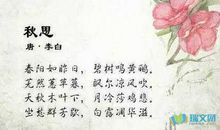 秋思
唐·李白
春阳如昨日，碧树鸣黄鹂。
芜然蕙草暮，飒尔凉风吹。
天秋木叶下，月冷莎鸡悲。
坐愁群芳歇，白露凋华滋。
瑞文网